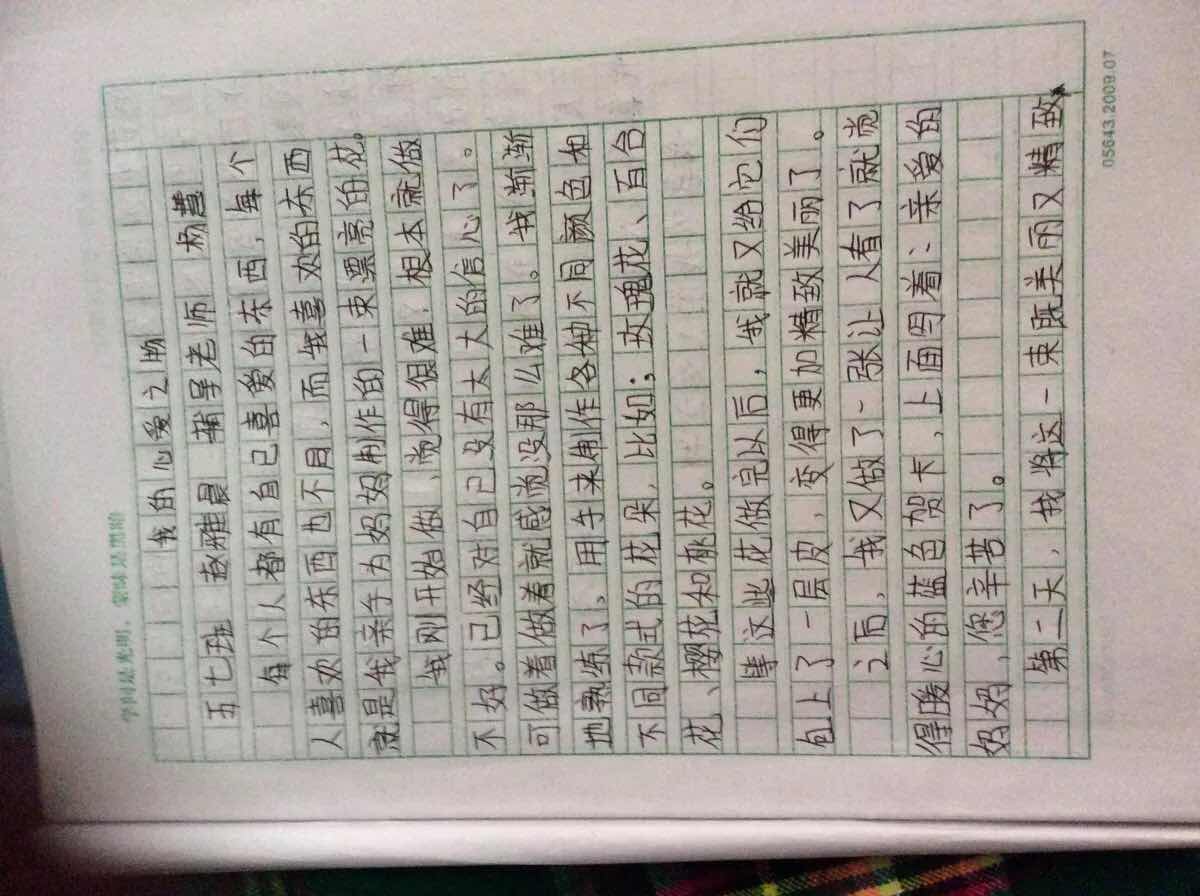 学问是光明，蒙昧是黑暗
我的心爱之物
五七班 赵雅晨 辅导老师 杨慧
每个人都有自己喜爱的东西，每个
人喜欢的东西也不同，而我喜欢的东西
就是我亲手为妈妈制作的一束漂亮的花。
我刚开始做，觉得很难，根本就做
不好。已经对自己没有太大的信心了。
可做着做着就感觉没那么难了。我渐渐
地熟练了，用手来制作各种不同颜色和
不同款式的花朵，比如；玫瑰花、百合
花、樱花和花。
等这些花做完以后，我就又给它们
包上了一层皮，变得更加精致美丽了。
之后，我又做了一张让人看了就觉
得暖心的蓝色贺卡，上面写着：亲爱的
妈妈，您辛苦了。
第二天，我将这一束既美丽又精致
05643.2009.07